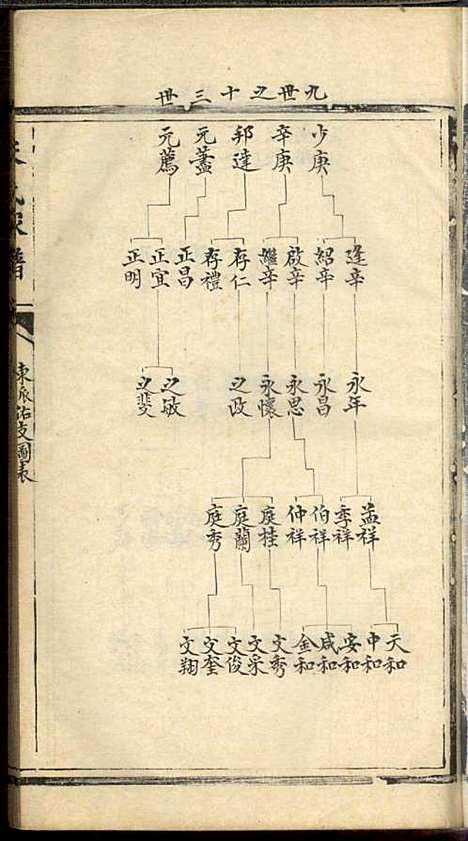 九世之十三世
少庚
辛庚
邦達
元藎
元薦
逢辛
紹辛
啟辛
繼辛
存仁
存禮
正昌
正宜
正明
永年
永昌
永思
永懷
之政
之敏
之斐
孟祥
季祥
伯祥
仲祥
庭桂
庭蘭
庭秀
天和
中和
安和
咸和
金和
文秀
文采
文俊
文奎
文翔
氏家譜
東派佑支圖表